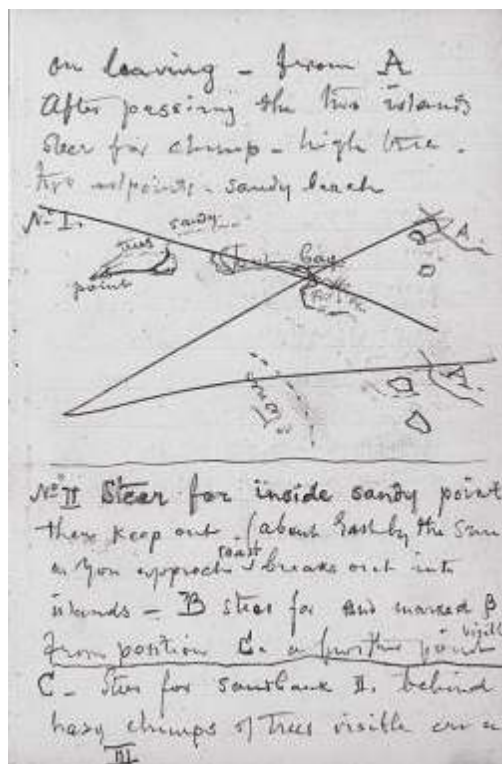 on leaving - from A
After passing the two islands
steer for clump - high tree.
two points - sandy beach
No I.
trees
sandy
point
Bay
A
A
No II Steer for inside sandy point
then keep out. (about East by the Sun
as you approach coast breaks out into
islands - B steer for and marked β
from position C. a further point visible
C. Steer for sandbank II. behind
hazy clumps of trees visible
III